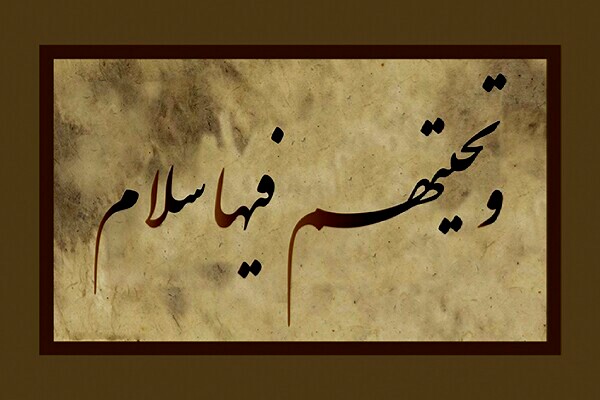 وتحیتهم فیها سلام